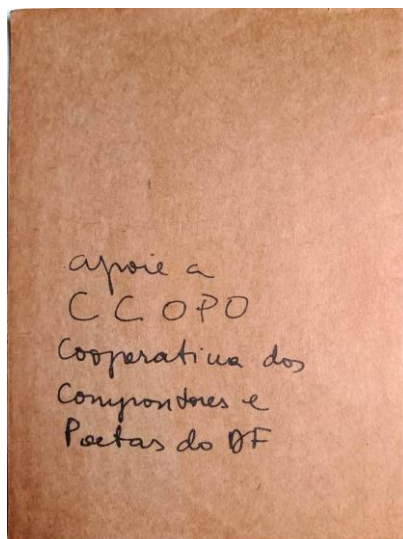 apoie a
CCOPO
Cooperativa dos
Compositores e
Poetas do DF